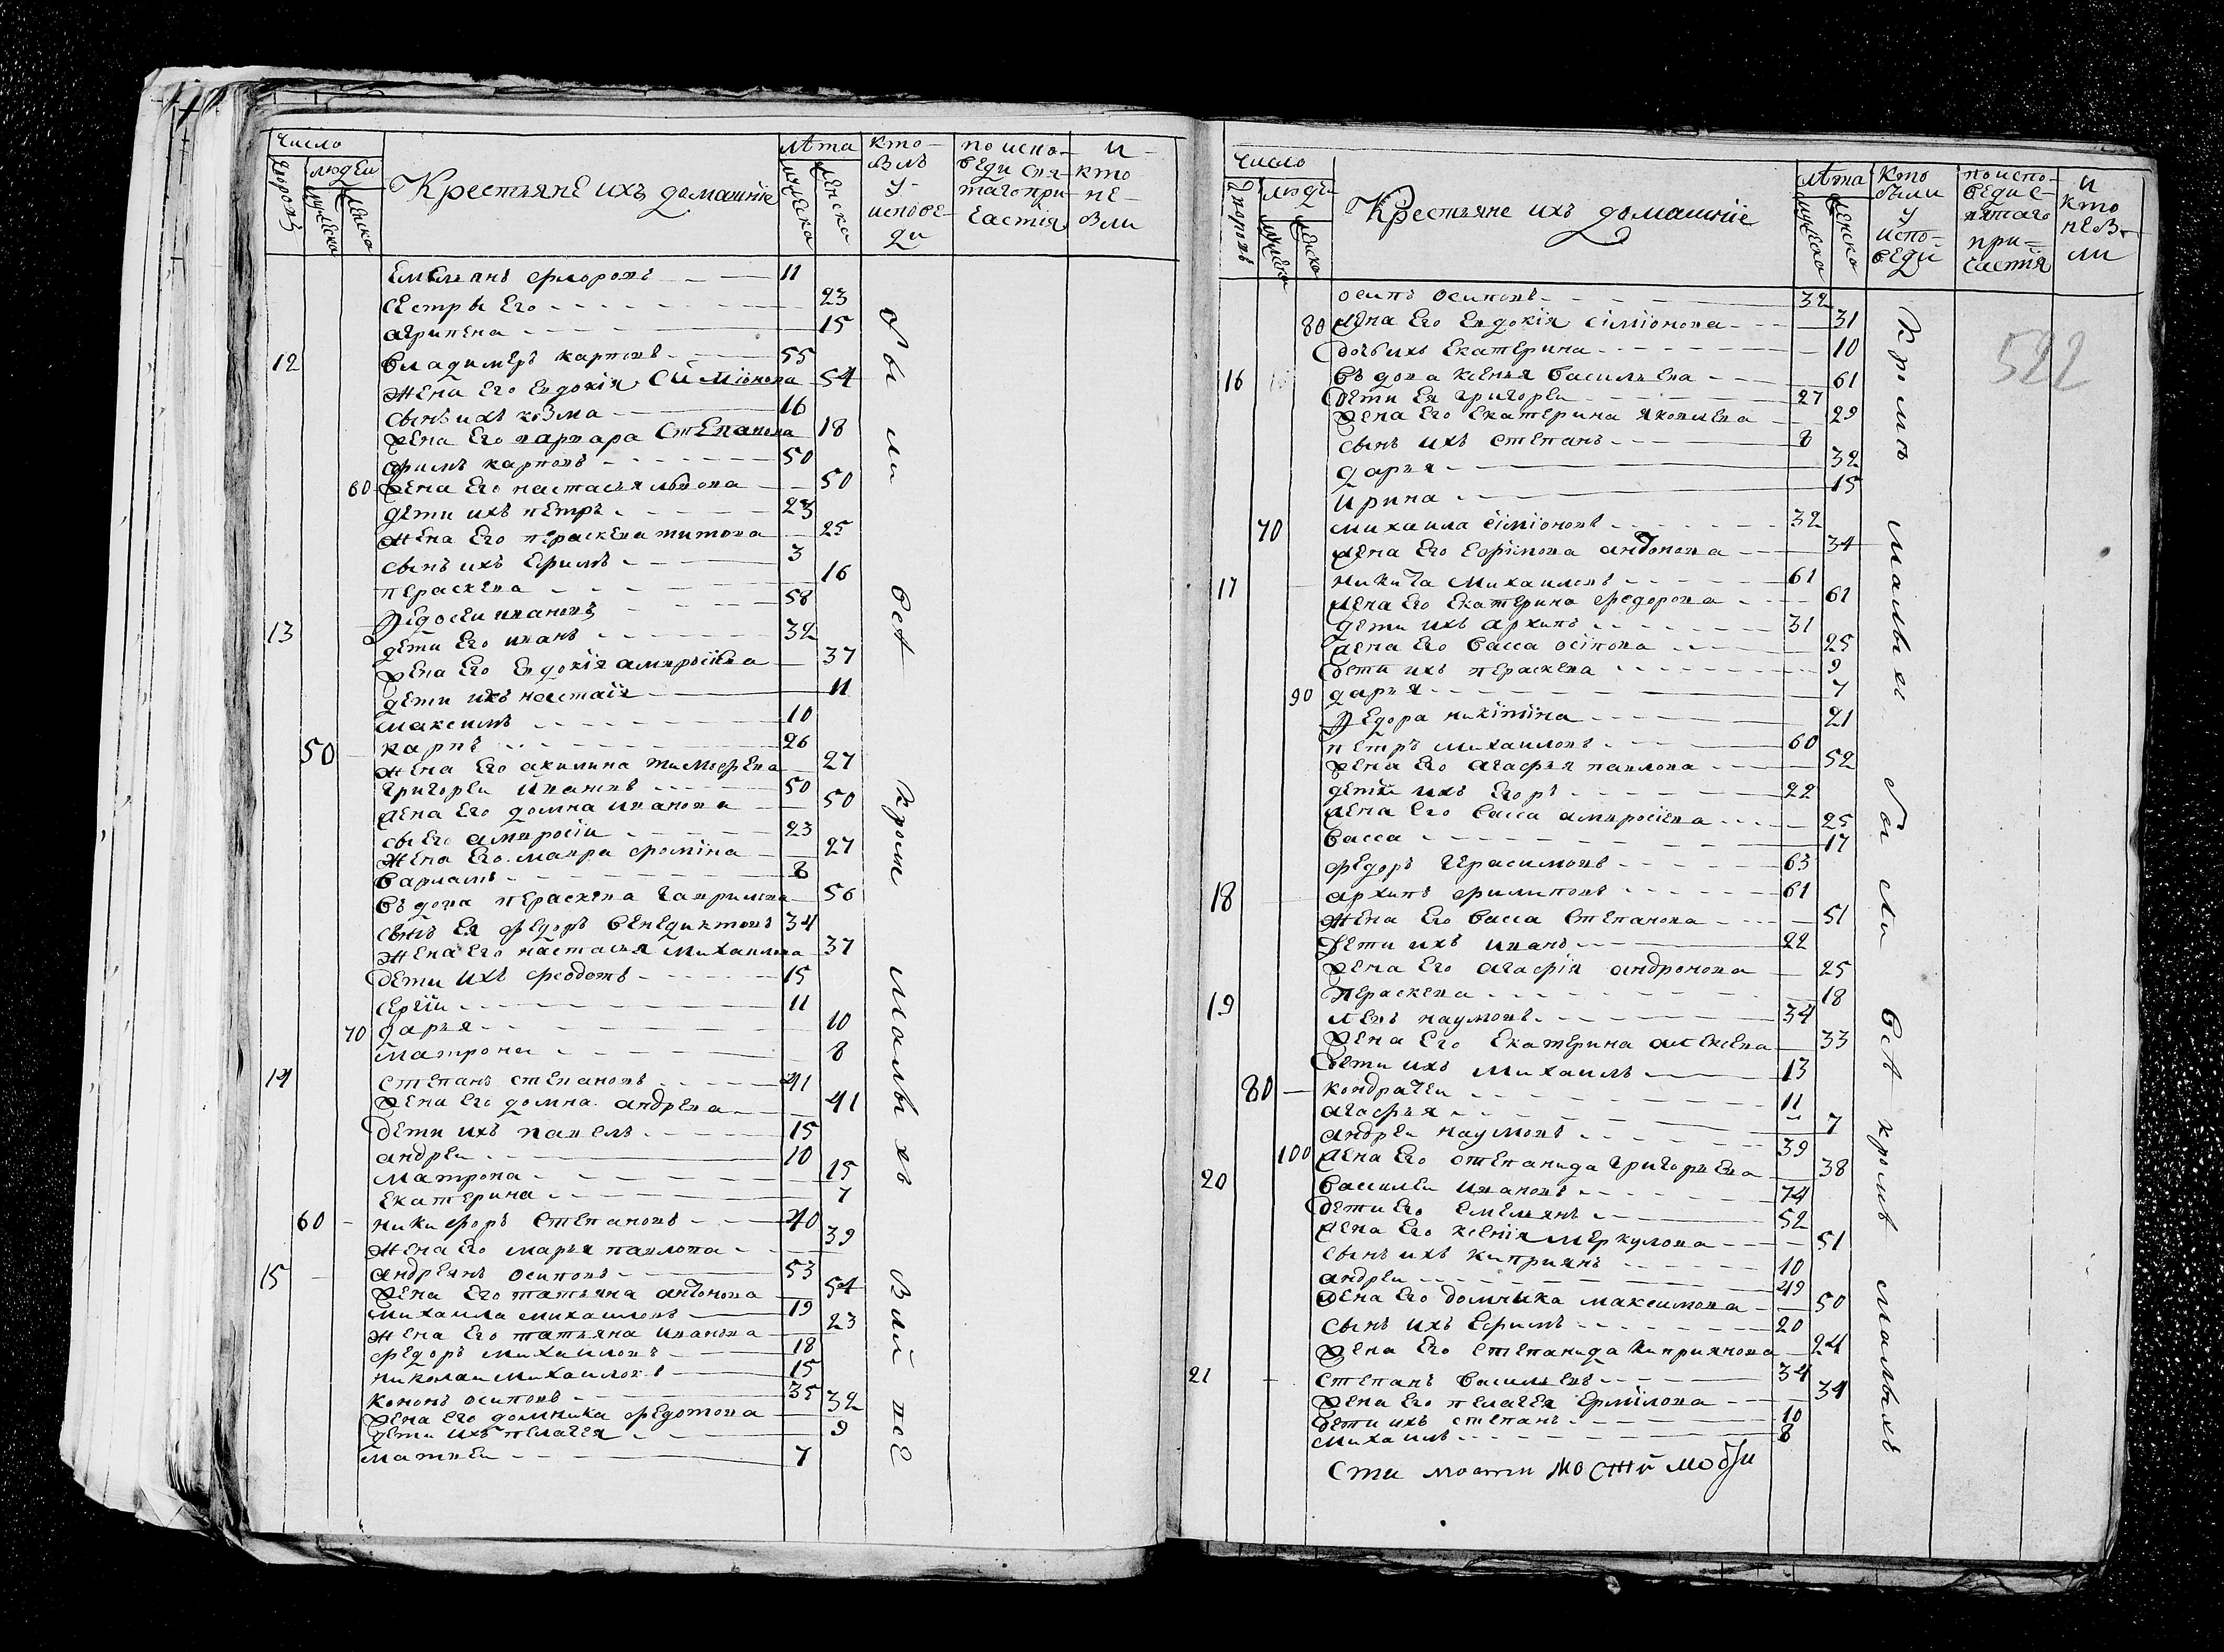 число
людеи
дворовъ
мужеска
женска
Крестьяне ихъ домашніе
лѣта
мужеска
женска
кто
былъ
у
исповѣ-
ди
по испо-
веди свя-
таго при-
частія
и
кто
не
были
Емельянъ флоровъ 11
сестры Его 23
агрипена 15
12 владимеръ карповъ 55
жена Его Евдокія симіонова 54
сынъ ихъ козма 16
жена Его варвара степанова 18
фимъ карповъ 50
60 жена Его настасья львова 50
дети ихъ петръ 23
жена Его пераскева титова 25
сынъ ихъ Ефимъ 3
пераскева 16
13 федосеи ивановъ 58
дети Его иванъ 32
жена Его Евдокія амвросіева 37
дети ихъ настаія 11
максимъ 10
50 карпъ 26
жена Его акилина тимофева 27
григореи ивановъ 50
жена Его домна иванова 50
сы Его амвросіи 23
жена Его мавра фомина 27
варламъ 8
въдова пераскева гаврилова 56
сынъ Ея федоръ венедиктовъ 34
жена Его настасья михаилова 37
дети ихъ феодотъ 15
сергіи 11
70 дарья 10
матрона 8
14 степанъ степановъ 41
жена Его домна андрева 41
дети ихъ павелъ 15
андреи 10
матрона 15
Екатерина 7
60 никифоръ степановъ 40
жена Его марья павлова 39
15 андреянъ осиповъ 53
жена Его татьяна антонова 54
михаила михаиловъ 19
жена Его татьяна иванова 23
федоръ михаиловъ 18
николаи михаиловъ 15
кононъ осиповъ 35
жена Его домника федотова 32
дети ихъ пелагея 9
матвеи 7
были все кромѣ малыхъ
число
людеи
дворовъ
мужеска
женска
Крестьяне ихъ домашніе
лѣта
мужеска
женска
кто
были
у
испо-
веди
по испо-
веди с-
вятаго
при-
частія
и
кто
не бы-
ли
522
осипъ осиповъ 32
80 жена Его Евдокія сіміонова 31
дочь ихъ Екатерина 10
16 въдова ксенья васильева 61
дети Ея григореи 27
жена Его Екатерина яковлева 29
сынъ ихъ степанъ 8
дарья 32
ирина 15
70 михаила сіміоновъ 32
жена Его Ефимова антонова 34
17 никита михаиловъ 61
жена Его Екатерина федорова 61
дети ихъ архипъ 31
жена Его васса осіпова 25
дети ихъ пераскева 9
90 дарья 7
федора никітіна 21
петръ михаиловъ 60
жена Его агафья павлова 52
дети ихъ Егоръ 22
жена Его васса амвросіева 25
васса 17
федоръ герасимовъ 63
18 архипъ филиповъ 61
жена Его васса степанова 51
дети ихъ иванъ 22
жена Его агафія андронова 25
пераскева 18
19 левъ наумовъ 34
жена Его Екатерина алексева 33
дети ихъ михаилъ 13
80 кондратеи 11
агафья 7
андреи наумовъ 39
100 жена Его степанида григорьева 38
20 василеи ивановъ 74
дети Его Емельянъ 52
жена Его ксенія меркулова 51
сынъ ихъ киприянъ 10
андреи 49
жена Его домника максимова 50
сынъ ихъ Ефимъ 20
жена Его степанида киприянова 24
21 степанъ васильевъ 34
жена Его пелагея Ермілова 34
дети ихъ степанъ 10
михаилъ 8
кромѣ малыхъ были все кромѣ малыхъ